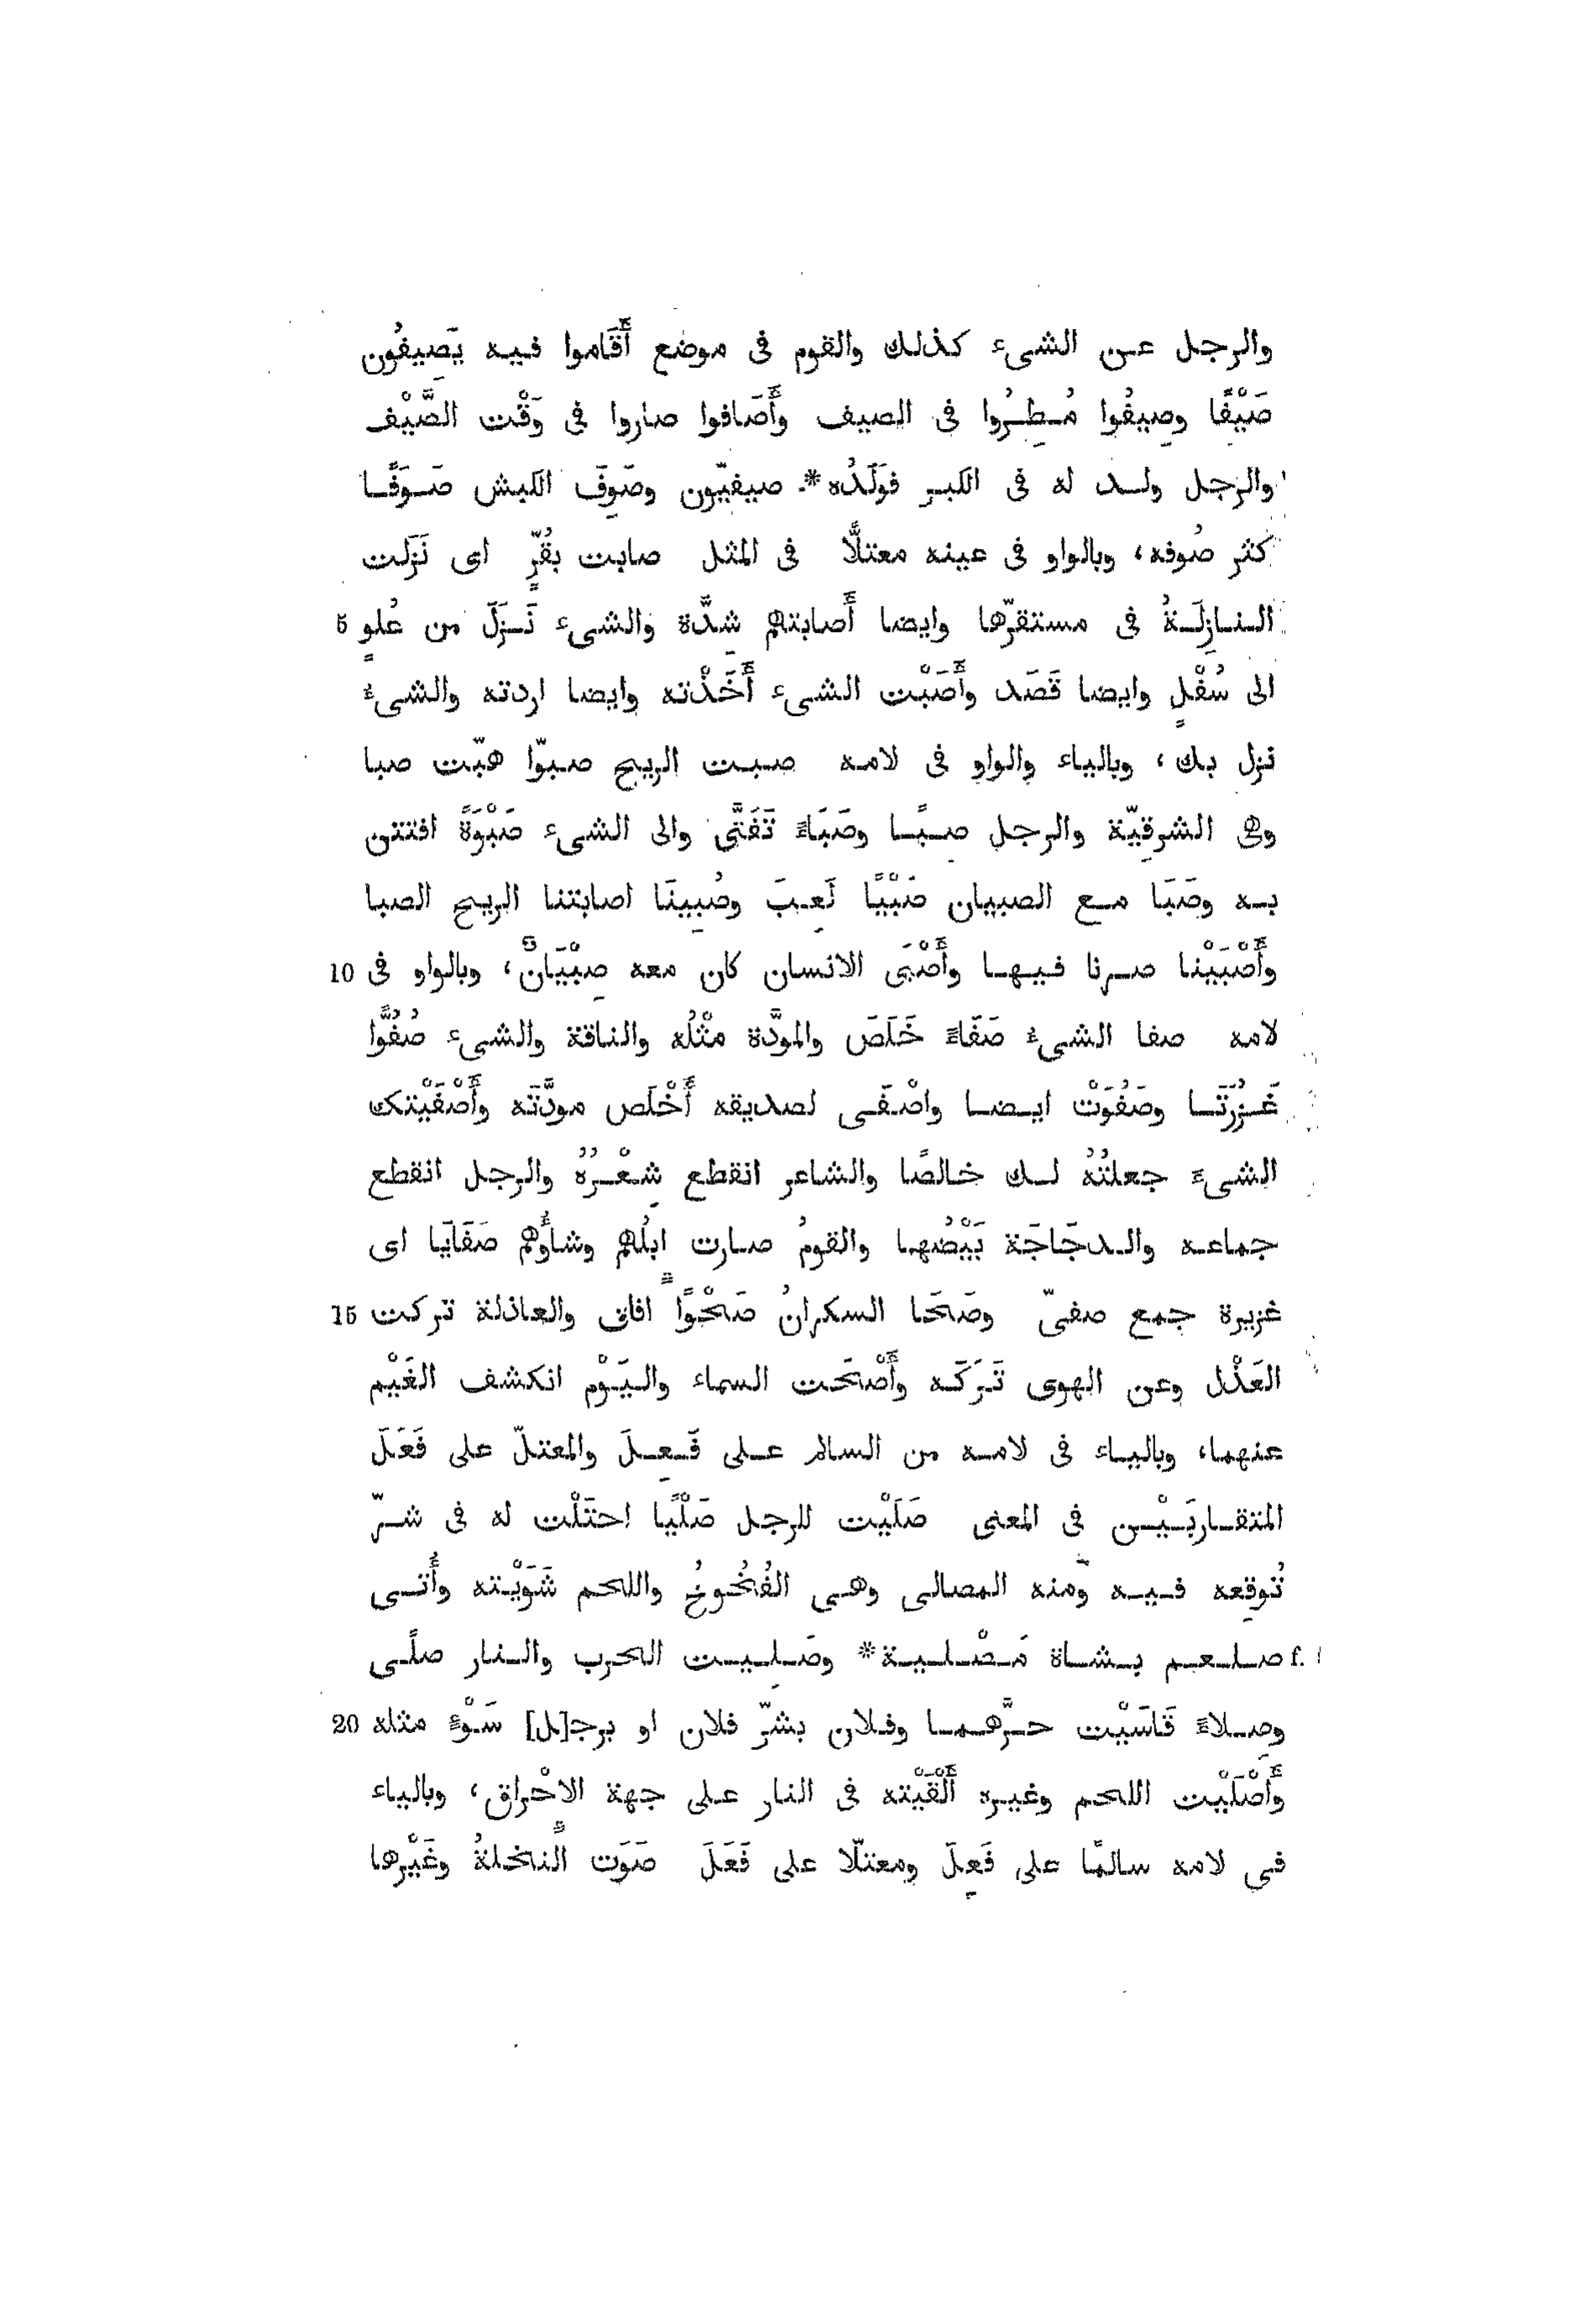 والرجل عن الشىء كذلك والقوم فى موضع أَقَاموا فيه يَصِيفُون
صَيْفًا وصِيفُوا مُطِرُوا فى الصيف وأَصَافوا صاروا فى وَقْت الصَّيْف
والرجل ولد له فى الكبر فوَلَدُه* صيفيّون وصَوِفَ الكبش صَوَفًا
كثر صُوفه، وبالواو فى عينه معتلًّا فى المثل صابت بقُرٍّ اى نَزَلت
النازِلَةُ فى مستقرّها وايضا أَصابتهم شِدَّة والشىء نَزَلَ من عُلوٍ 5
الى سُفْلٍ وايضا قَصَد وأَصَبْت الشىء أَخَذْته وايضا اردته والشىءُ
نزل بك، وبالياء والواو فى لامه صبت الريح صبوّا هبّت صبا
وهى الشرقيّة والرجل صِبًا وصَبَاءً تَفَتَّى والى الشىء صَبْوَةً افتتن
به وصَبَا مع الصبيان صَبْيًا لَعِبَ وصُبِينَا اصابتنا الريح الصبا
وأَصْبَيْنا صرنا فيها وأَصْبَى الانسان كان معه صِبْيَانٌ، وبالواو فى 10
لامه صفا الشىءُ صَفَاءً خَلَصَ والمودَّة مثْلُه والناقة والشىء صُفُوًّا
غَزُرَتَا وصَفُوَتْ ايضا واصْفَى لصديقه أَخْلَص مودَّتَه وأَصْفَيْتك
الشىءَ جعلتُهُ لك خالصًا والشاعر انقطع شِعْرُهُ والرجل انقطع
جماعه والدجَاجَة بَيْضُها والقومُ صارت ابلُهم وشاؤُهم صَفَايَا اى
غزيرة جمع صفىّ وصَحَا السكرانُ صَحْوًا افاق والعاذلة تركت 15
العَذْل وعن الهوى تَرَكَه وأَصْحَت السماء واليَوْم انكشف الغَيْم
عنهما، وبالياء فى لامه من السالم على فَعِلَ والمعتلّ على فَعَلَ
المتقاربَيْن فى المعنى صَلَيْت للرجل صَلْيًا احتَلْت له فى شرّ
تُوقِعه فيه ومنه المصالى وهى الفُخُوخُ واللحم شَوَيْته وأُتى
صلعم بشاة مَصْلية* وصَلِيت الحرب والنار صلًى f.
وصِلاءً قَاسَيْت حرَّهما وفلان بشرّ فلان او برجـ[ـل] سَوْءٍ مثله 20
وأَصْلَيْت اللحم وغيره أَلْقَيْته فى النار على جهة الاحْراق، وبالياء
فى لامه سالمًا على فَعِلَ ومعتلّا على فَعَلَ صَوَت النخلةُ وغَيْرها